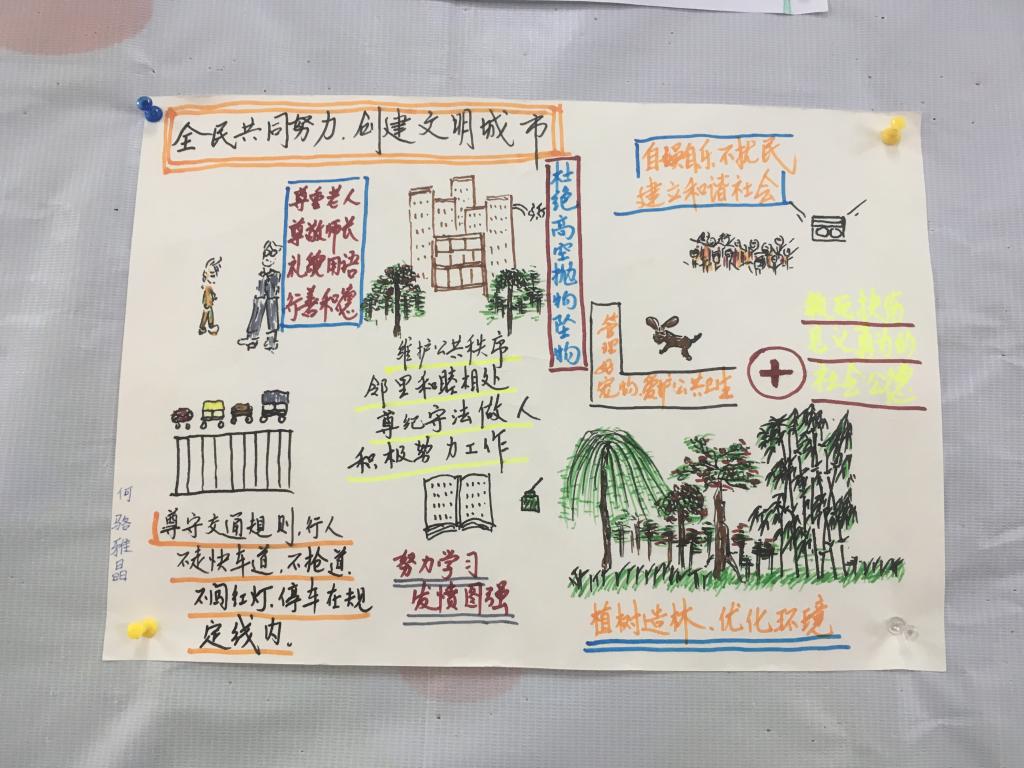 全民共同努力、创建文明城市
尊重老人
尊敬师长
礼貌用语
行善和德
杜绝高空抛物坠物
自娱自乐、不扰民
建立和谐社会
管理好
宠物、爱护公共卫生
救死扶伤
见义勇为的
社会公德
维护公共秩序
邻里和睦相处
尊纪守法做人
积极努力工作
尊守交通规则,行人
不走快车道,不抢道.
不闯红灯、停车在规
定线内.
努力学习
发愤图强
植树造林、优化环境
何骆雅晶